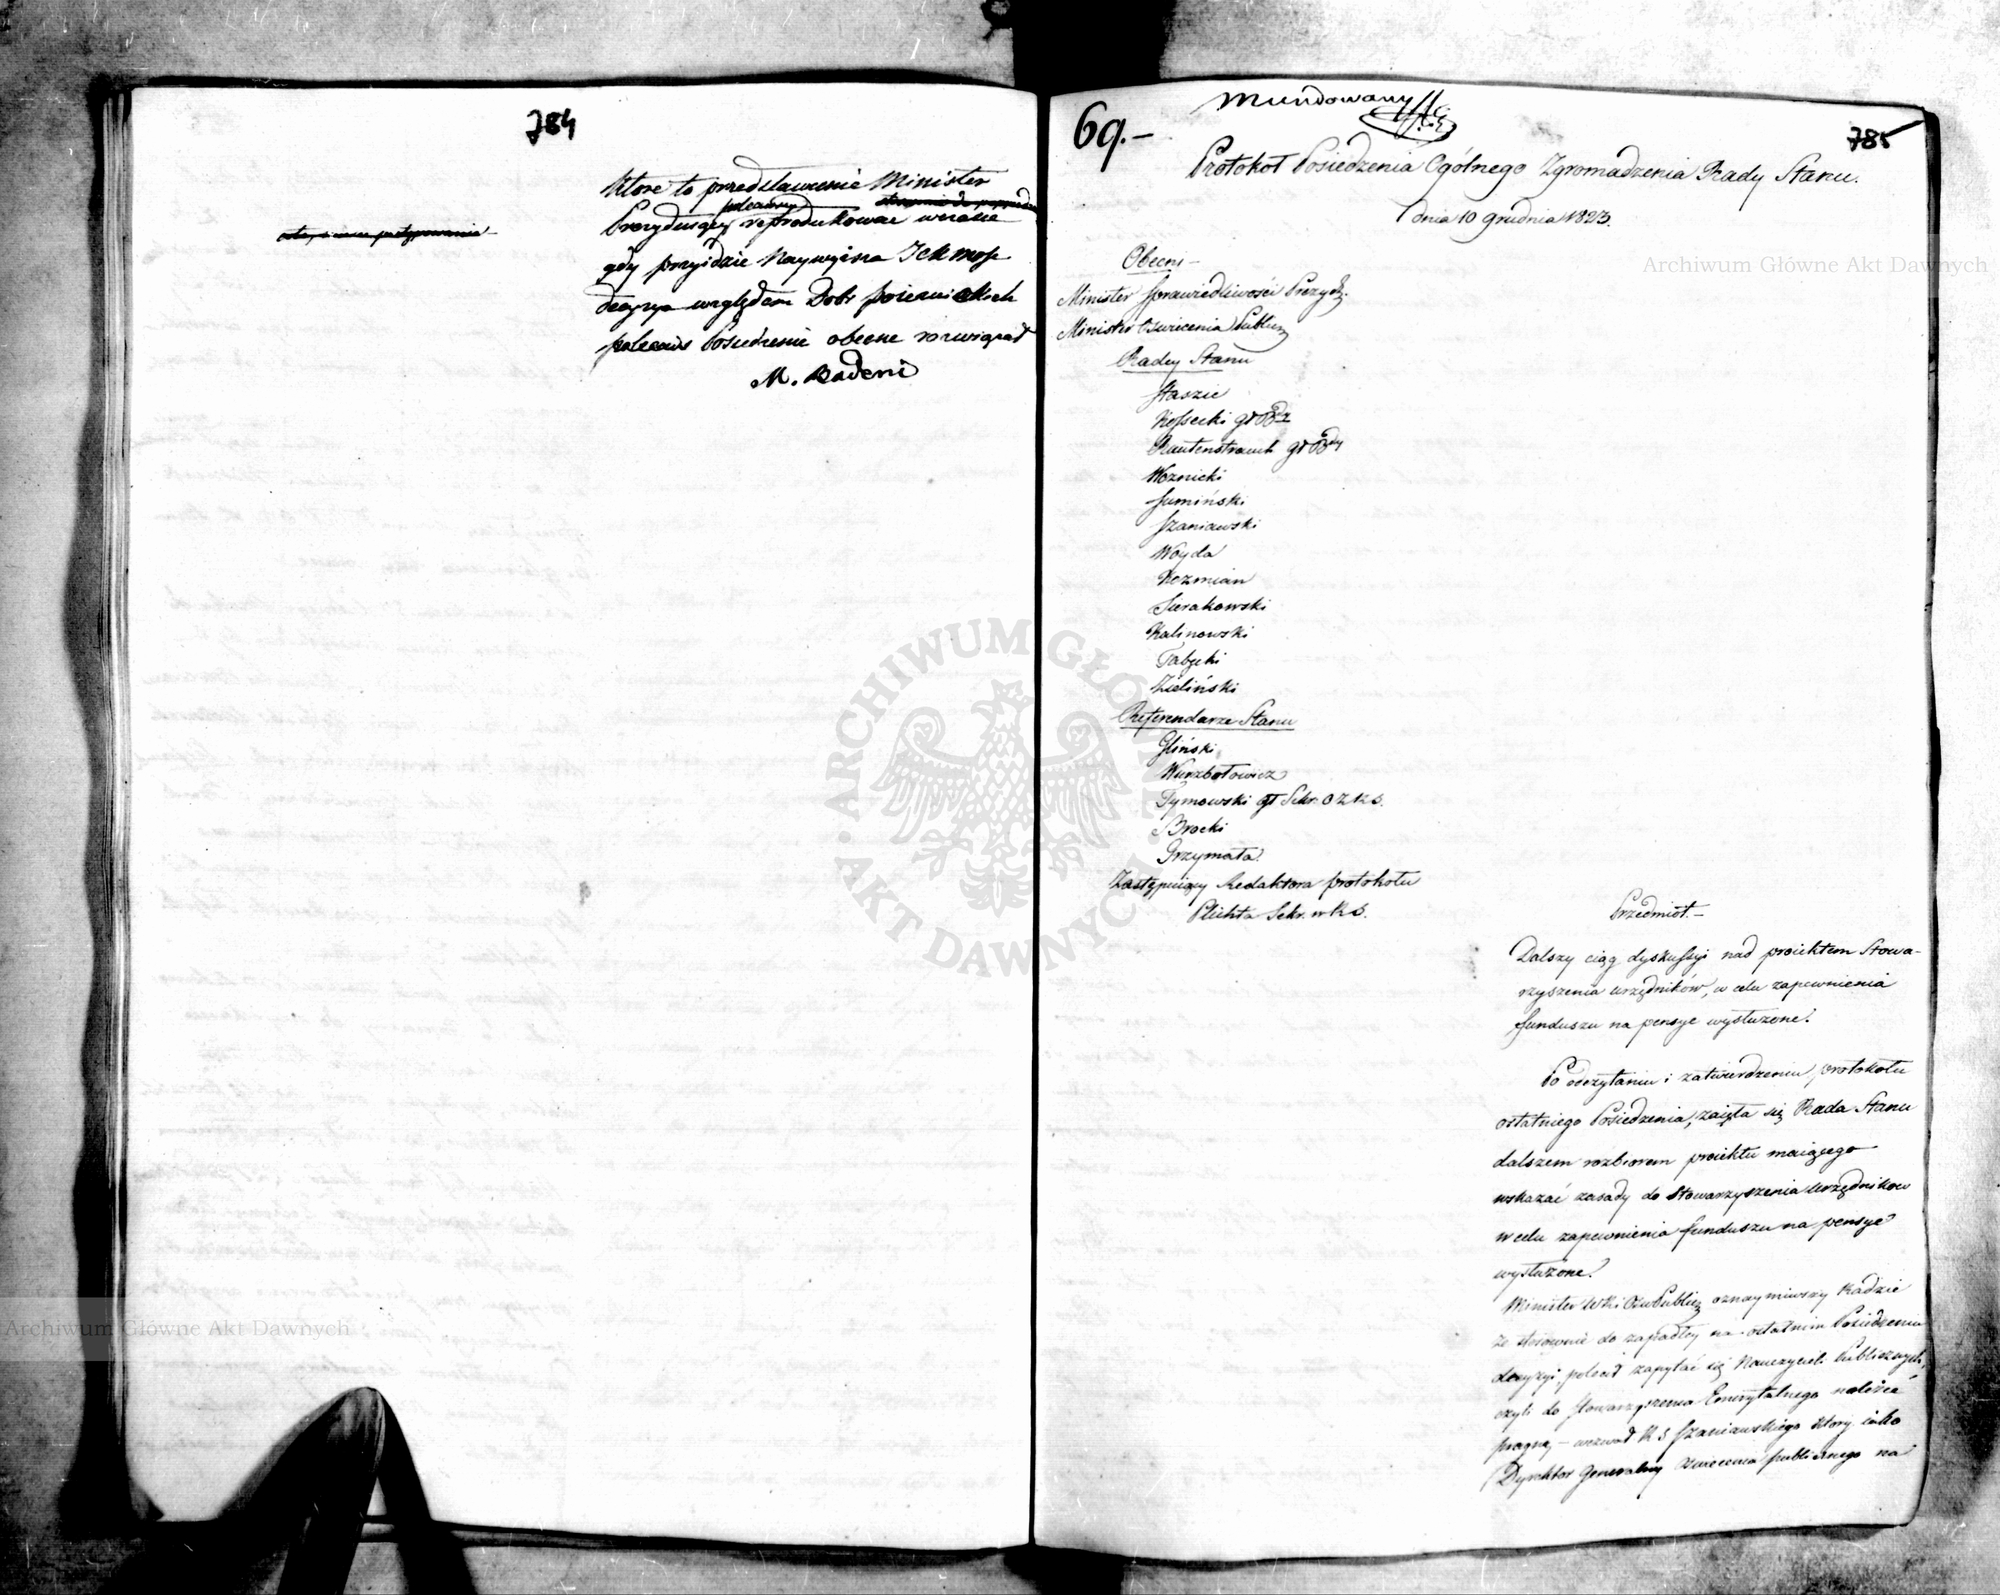 784
które to przedstawienie Minister
Prezydujący poleciwszy reprodukować wczasie
gdy przyidzie Naywyższa JCKMośc
decyzya względem Dobr
Posiedzenie obecne rozwiązał
M. Badeni
69.-
Mundowany
785
Protokoł Posiedzenia Ogólnego Zgromadzenia Rady Stanu.
dnia 10 grudnia 1823.
Obecni-
Minister Sprawiedliwości Prezyd.
Minister Oświecenia Publicz
Radcy Stanu
Staszic
Kossecki
Rautenstrauch
Woznicki
Sumiński
Szaniawski
Woyda
Kozmian
Sierakowski
Kalinowski
Tabęcki
Zieliński
Referendarze Stanu
Gliński
Wierzbołowicz
Tymowski gł Sekr. O Z R S.
Brocki
Grzymała
Zastępuiący Redaktora protokołu
Plichta Sekr. w R S.
Przedmiot.-
Dalszy ciąg dyskussyi nad proiektem Stowa-
rzyszenia urzędników, w celu zapewnienia
funduszu na pensye wysłużone.
Po odczytaniu i zatwierdzeniu protokołu
ostatniego Posiedzenia, zaięła się Rada Stanu
dalszem rozbiorem proiektu maiącego
wskazać zasady do Stowarzyszenia Urzędników
w celu zapewnienia funduszu na pensye
wysłużone.
Minister Publicz oznaymiwszy Radzie
że stosownie do zapadłey na ostatnim Posiedzeniu
decyzyi, polecił zapytać się Nauczycieli Publicznych,
czyli do Stowarzyszenia Emerytalnego należeć
pragną, - wezwał R S Szaniawskiego który iako
Dyrektor Generalny Oświecenia publicznego na
Archiwum Główne Akt Dawnych
Archiwum Główne Akt Dawnych
ARCHIWUM GŁÓWNE AKT DAWNYCH